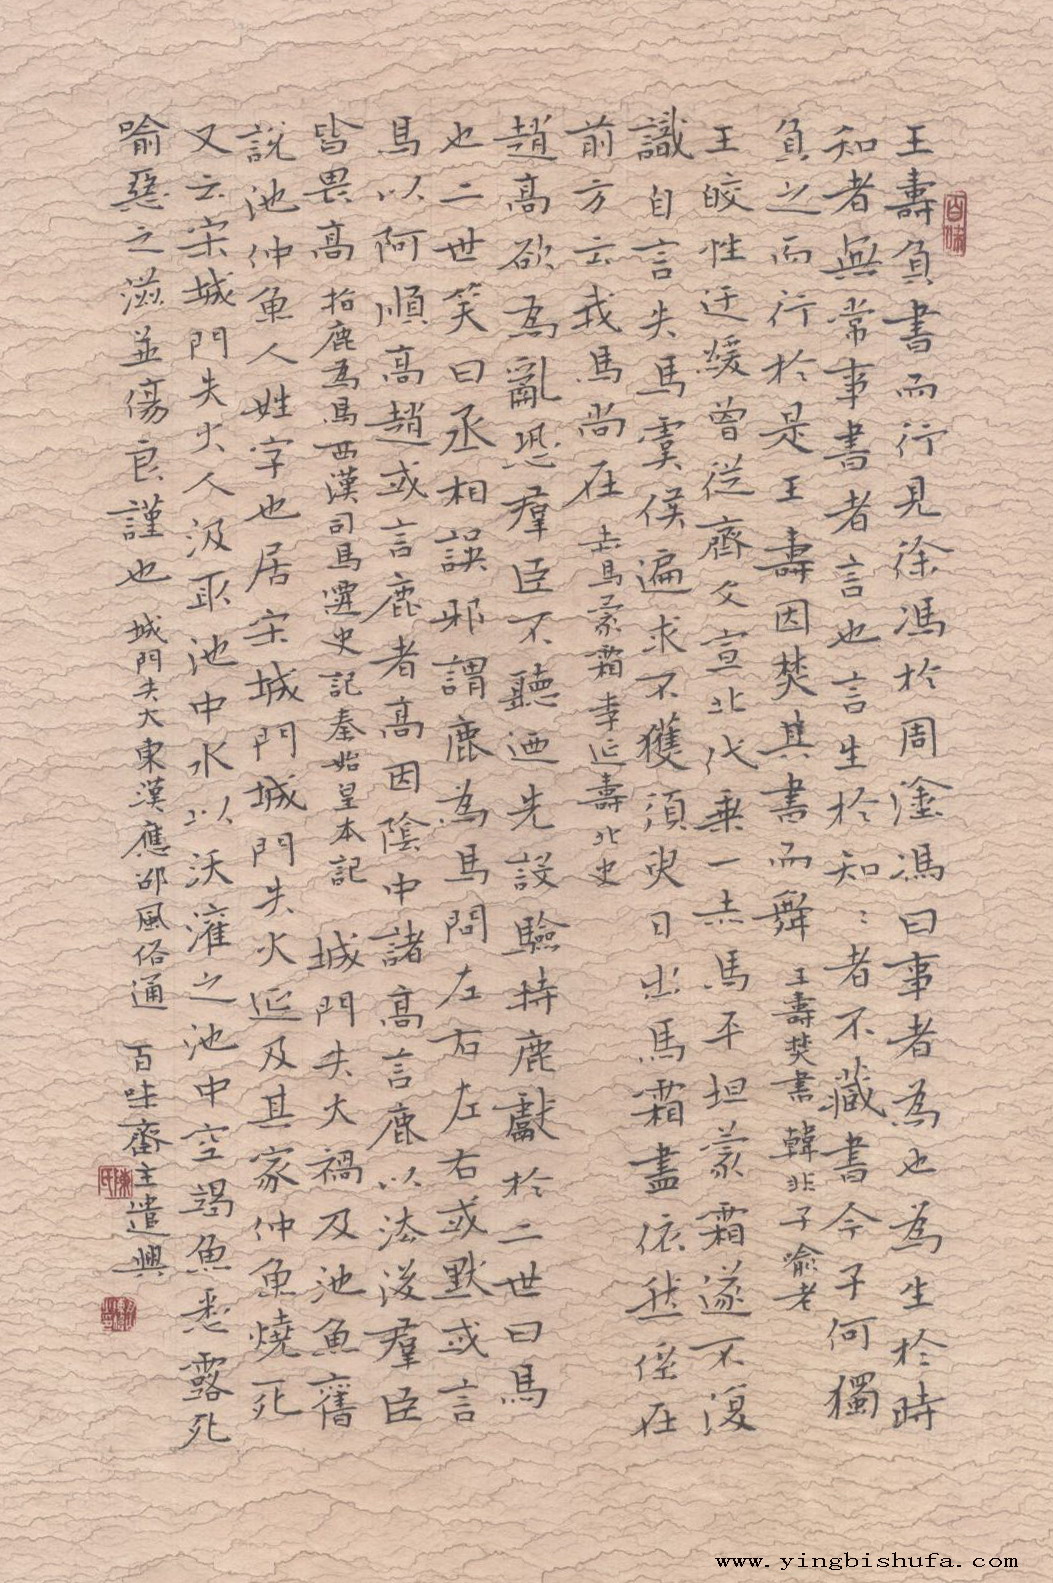 王壽負書而行見徐馮於周塗馮曰事者為也為生於時
知者無常事書者言也言生於知〻者不藏書今子何獨
負之而行於是王壽因焚其書而舞 王壽焚書 韓非子喻老
王皎性迂緩曾從齊文宣北伐乗一赤馬平坦蒙霜遂不復
識自言失馬虞侯遍求不獲須臾日出馬霜盡依然係在
前方云我馬尚在 赤馬蒙霜 李延壽北史
趙高欲為亂恐羣臣不聽迺先設驗持鹿獻於二世曰馬
也二世笑曰丞相誤邪謂鹿為馬問左右左右或默或言
馬以阿順高趙或言鹿者高因陰中諸高言鹿以法後羣臣
皆畏高 指鹿為馬 西漢司馬遷史記秦始皇本記 城門失火禍及池魚舊
說池仲魚人姓字也居宋城門城門失火延及其家仲魚燒死
又云宋城門失火人汲取池中水以沃灌之池中空竭魚悉露死
喻惡之滋並傷良謹也 城門失火 東漢應邵風俗通 百味齋主遣興
百味
www.yingbishufa.com